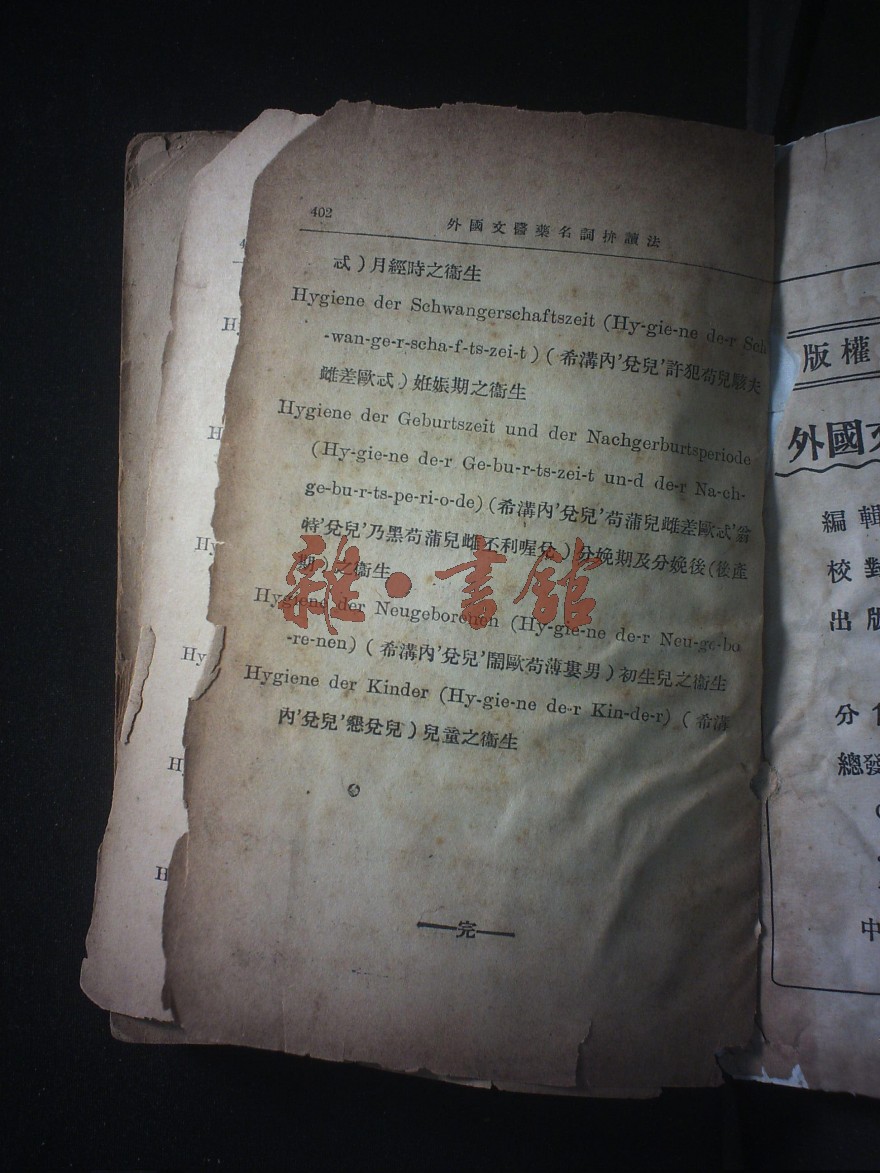 402
外國文醫藥名詞拚讀法
忒）月經時之衞生
Hygiene der Schwangerschaftszeit (Hy-gie-ne de-r Sch
-wan-ge-r-scha-f-ts-zei-t)（希溝內’兌兒’許犯苟兒駭夫
雌差歐忒）姙娠期之衞生
Hygiene der Geburtszeit und der Nachgerburtsperiode
(Hy-gie-ne de-r Ge-bu-r-ts-zei-t un-d de-r Na-ch-
ge-bu-r-ts-pe-ri-o-de)（希溝內’兌兒’苟蒲兒雌差歐忒’翁
特’兌兒’乃黑苟蒲兒雌丕利喔兌）分娩期及分娩後(後產
期）之衞生
Hygiene der Neugeborenen (Hy-gie-ne de-r Neu-ge-bo
-re-nen)（希溝內’兌兒’鬧歐苟薄婁男）初生兒之衞生
Hygiene der Kinder (Hy-gie-ne de-r Kin-de-r)（希溝
內’兌兒’懇兌兒）兒童之衞生
完
雜·書館
H
H
Hy
Hy
H
H
版權
外國文
編輯
校對
出版
分
總發
中